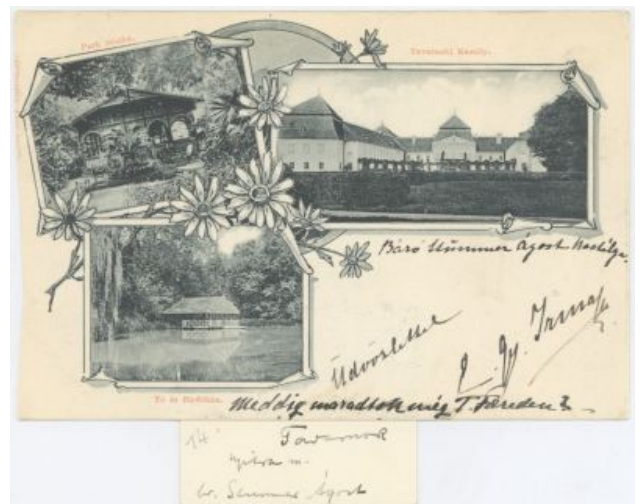 Park részlet.
Tavarnoki Kastély.
Báró Stummer Ágost kastélya
Üdvözlettel
Irma
Tó és Halászház.
Meddig maradtok még T. Füreden?
14
Tavarnok
Nyitra m.
br. Stummer Ágost